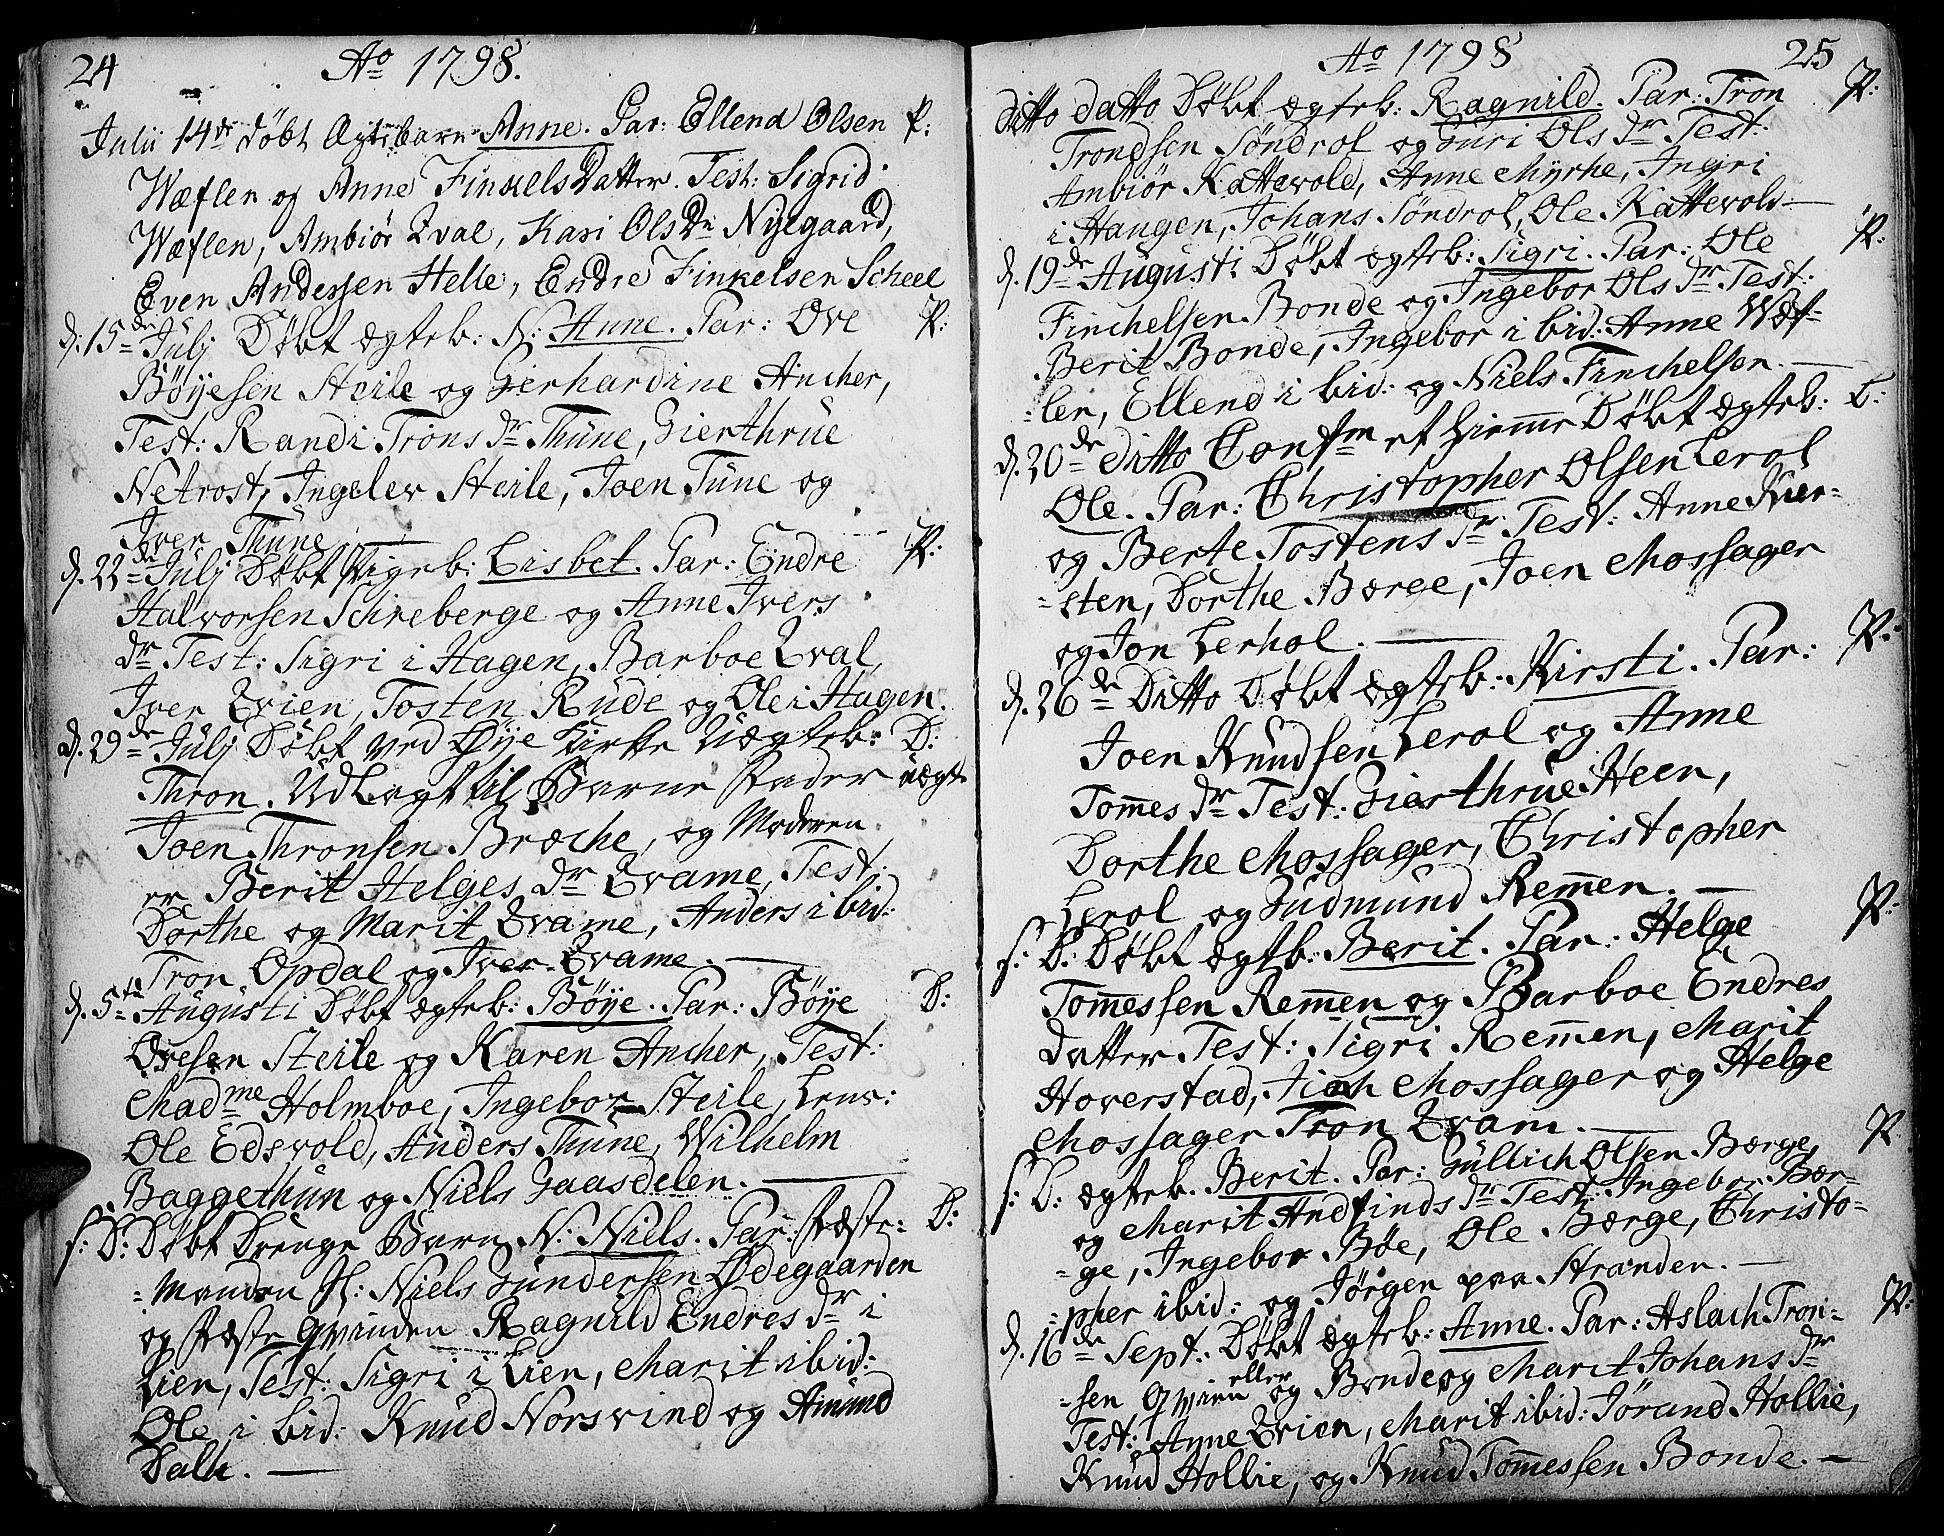 24
Ao 1798.
Julii 14de døbt Ægtebarn Anne. Par: Ellend Olsen P:
Wæflen og Anne Finkels Datter. Test: Sigrid
Wæflen, Ambiør Qval, Kari Ols Dr Nylgaard,
Even Andersen Helle, Endre Finkelsen Scheel
d. 15de Julj Døbt ægteb: N: Anne. Par: Ove P:
Bøyesen Steile og Gerhardine Ancher,
Test: Randi Trons dr Thune, Gierthrue
Netrost, Ingelev Steile, Joen Tune og
Iver Thune.
d. 22de Julj Døbt Pigeb: Lisbet. Par: Endre P:
Halvorsen Schreberge og Anne Ivers
dr Test: Sigri i Hagen, Barboe Qval,
Iver Qvien, Tosten Rude og Ole i Hagen.
d. 29de Julj Døbt ved Øye Kirke Uægteb: D:
Thron. Udlagt til Barne Fader uægt
Joen Thronsen Bræche, og Moderen
er Berit Helges dr Qvame, Test:
Dorthe og Marit Qvame, Anders ibid:
Tron Opdal og Iver Qvame.
d. 5te Augusti Døbt ægteb: Bøye. Par: Bøye D:
Ovesen Steile og Karen Ancher, Test:
Madme Holmboe, Ingebor Steile, Lens:
Ole Edsvold, Anders Thune, Wilhelm
Baggethun og Niels Gaasdelen.
f: D: Døbt Drenge Barn N: Niels. Par: Fæste= D:
=Manden Sl: Niels Gundersen Ødegaarden
og Fæste Qvinden Ragnild Endres dr i
Lien, Test: Sigri i Lien, Marit ibid:
Ole i bid: Knud Norsvind og Amund
Dalh.
Ao 1798 25
ditto datto Døbt ægteb: Ragnild. Par: Tron P:
Trondsen Søndrol og Guri Ols dr Test:
Ambiør Kattevold, Anne Myrhe, Ingri
i Haugen, Johans Søndrol, Ole Kattevold
d. 19de Augusti Døbt ægteb: Sigri. Par: Ole P:
Finchelsen Bonde og Ingebor Ols dr Test:
Berit Bonde, Ingebor i bid: Anne Wæf-
=len, Ellend i bid: og Niels Finchelsen.
d. 20de ditto Confm et hiemme Døbt ægteb: D:
Ole. Par: Christopher Olsen Lerol
og Berte Tostens dr Test: Anne Kier-
=sten, Dorthe Børge, Joen Mossager
og Jon Lerhol.
d. 26de Ditto Døbt ægteb: Kirsti. Par: P:
Joen Knudsen Lerol og Anne
Tomes dr Test: Gierthrue Heen,
Dorthe Mossager, Christopher
Lerol og Gudmund Remen.
f: D: Døbt ægtb: Berit. Par: Helge P:
Tomessen Remen og Barboe Endres
Datter Test: Sigri Remen, Marit
Hoverstad, Mossager og Helge
Mossager Tron Qvam.
f: D: ægteb. Berit. Par: Gullich Olsen Børge, P
og Marit Andfinds dr Test: Ingebor Bør-
=ge, Ingebor Bøe, Ole Børge, Christo-
=pher ibid: og Jørgen paa Stranden.
d. 16de Sept: Døbt ægteb: Anne. Par: Aslach Tron- P:
=sen Qvien eller Bonde og Marit Johans dr
Test: Anne Qvien, Marit ibid: Jørand Hollie,
Knud Hollie, og Knud Tomessen Bonde.